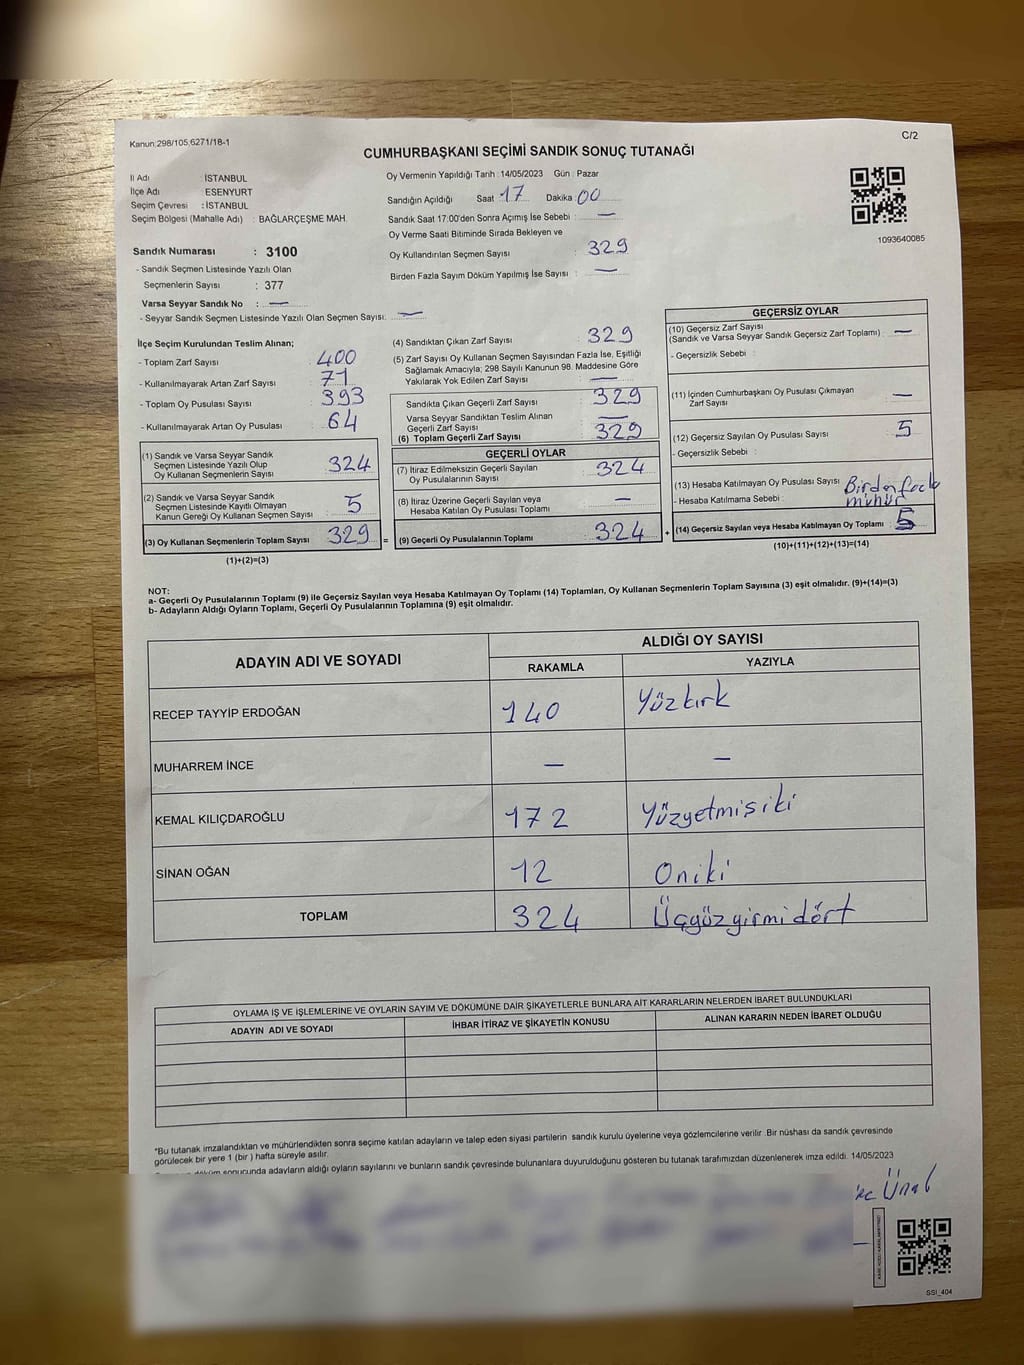 Kanun:298/105,6271/18-1
C/2
CUMHURBAŞKANI SEÇİMİ SANDIK SONUÇ TUTANAĞI
İl Adı : İSTANBUL
İlçe Adı : ESENYURT
Seçim Çevresi : İSTANBUL
Seçim Bölgesi (Mahalle Adı) : BAĞLARÇEŞME MAH.
Oy Vermenin Yapıldığı Tarih : 14/05/2023 Gün : Pazar
Sandığın Açıldığı Saat 17 Dakika 00
Sandık Saat 17:00'den Sonra Açımış İse Sebebi : —
Oy Verme Saati Bitiminde Sırada Bekleyen ve
Oy Kullandırılan Seçmen Sayısı : 329
Birden Fazla Sayım Döküm Yapılmış İse Sayısı : —
1093640085
Sandık Numarası : 3100
- Sandık Seçmen Listesinde Yazılı Olan
Seçmenlerin Sayısı : 377
Varsa Seyyar Sandık No : —
- Seyyar Sandık Seçmen Listesinde Yazılı Olan Seçmen Sayısı: —
İlçe Seçim Kurulundan Teslim Alınan;
- Toplam Zarf Sayısı : 400
- Kullanılmayarak Artan Zarf Sayısı : 71
- Toplam Oy Pusulası Sayısı : 393
- Kullanılmayarak Artan Oy Pusulası : 64
(1) Sandık ve Varsa Seyyar Sandık
Seçmen Listesinde Yazılı Olup
Oy Kullanan Seçmenlerin Sayısı : 324
(2) Sandık ve Varsa Seyyar Sandık
Seçmen Listesinde Kayıtlı Olmayan
Kanun Gereği Oy Kullanan Seçmen Sayısı : 5
(3) Oy Kullanan Seçmenlerin Toplam Sayısı : 329
(1)+(2)=(3)
(4) Sandıktan Çıkan Zarf Sayısı : 329
(5) Zarf Sayısı Oy Kullanan Seçmen Sayısından Fazla İse, Eşitliği
Sağlamak Amacıyla; 298 Sayılı Kanunun 98. Maddesine Göre
Yakılarak Yok Edilen Zarf Sayısı : —
Sandıkta Çıkan Geçerli Zarf Sayısı : 329
Varsa Seyyar Sandıktan Teslim Alınan
Geçerli Zarf Sayısı : —
(6) Toplam Geçerli Zarf Sayısı : 329
GEÇERLİ OYLAR
(7) İtiraz Edilmeksizin Geçerli Sayılan
Oy Pusulalarının Sayısı : 324
(8) İtiraz Üzerine Geçerli Sayılan veya
Hesaba Katılan Oy Pusulası Toplamı : —
= (9) Geçerli Oy Pusulalarının Toplamı : 324
GEÇERSİZ OYLAR
(10) Geçersiz Zarf Sayısı
(Sandık ve Varsa Seyyar Sandık Geçersiz Zarf Toplamı) : —
- Geçersizlik Sebebi :
(11) İçinden Cumhurbaşkanı Oy Pusulası Çıkmayan
Zarf Sayısı : —
(12) Geçersiz Sayılan Oy Pusulası Sayısı : 5
- Geçersizlik Sebebi :
(13) Hesaba Katılmayan Oy Pusulası Sayısı : Birden fazla
- Hesaba Katılmama Sebebi : mühür
+ (14) Geçersiz Sayılan veya Hesaba Katılmayan Oy Toplamı : 5
(10)+(11)+(12)+(13)=(14)
NOT:
a- Geçerli Oy Pusulalarının Toplamı (9) ile Geçersiz Sayılan veya Hesaba Katılmayan Oy Toplamı (14) Toplamları, Oy Kullanan Seçmenlerin Toplam Sayısına (3) eşit olmalıdır. (9)+(14)=(3)
b- Adayların Aldığı Oyların Toplamı, Geçerli Oy Pusulalarının Toplamına (9) eşit olmalıdır.
ADAYIN ADI VE SOYADI
ALDIĞI OY SAYISI
RAKAMLA YAZIYLA
RECEP TAYYİP ERDOĞAN 140 Yüzkırk
MUHARREM İNCE — —
KEMAL KILIÇDAROĞLU 172 Yüzyetmişiki
SİNAN OĞAN 12 Oniki
TOPLAM 324 Üçyüzyirmidört
OYLAMA İŞ VE İŞLEMLERİNE VE OYLARIN SAYIM VE DÖKÜMÜNE DAİR ŞİKAYETLERLE BUNLARA AİT KARARLARIN NELERDEN İBARET BULUNDUKLARI
ADAYIN ADI VE SOYADI İHBAR İTİRAZ VE ŞİKAYETİN KONUSU ALINAN KARARIN NEDEN İBARET OLDUĞU
*Bu tutanak imzalandıktan ve mühürlendikten sonra seçime katılan adayların ve talep eden siyasi partilerin sandık kurulu üyelerine veya gözlemcilerine verilir. Bir nüshası da sandık çevresinde
görülecek bir yere 1 (bir) hafta süreyle asılır.
sonucunda adayların aldığı oyların sayılarını ve bunların sandık çevresinde bulunanlara duyurulduğunu gösteren bu tutanak tarafımızdan düzenlenerek imza edildi. 14/05/2023
Ünal
SSI_404